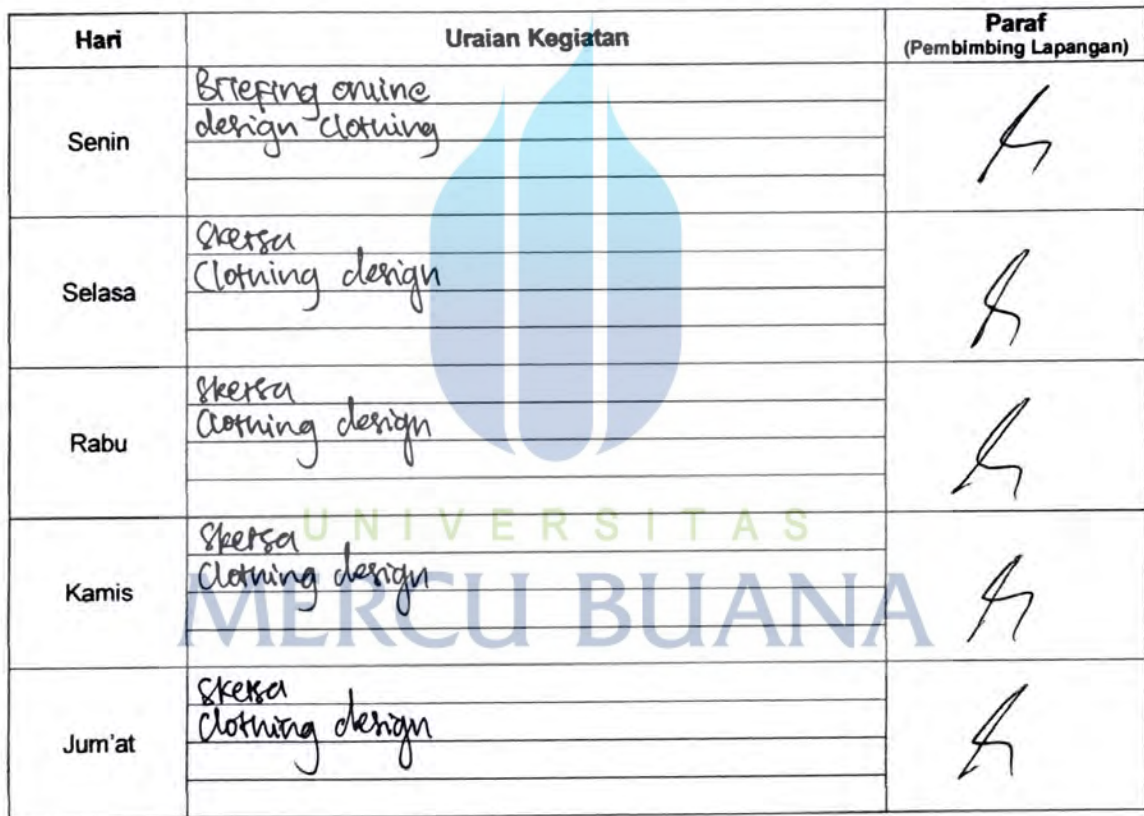 Hari Uraian Kegiatan Paraf
(Pembimbing Lapangan)
Senin
Briefing online
design clothing
Selasa
Sketsa
Clothing design
Rabu
Sketsa
Clothing design
Kamis
Sketsa
Clothing design
Jum'at
Sketsa
Clothing design
UNIVERSITAS
MERCU BUANA